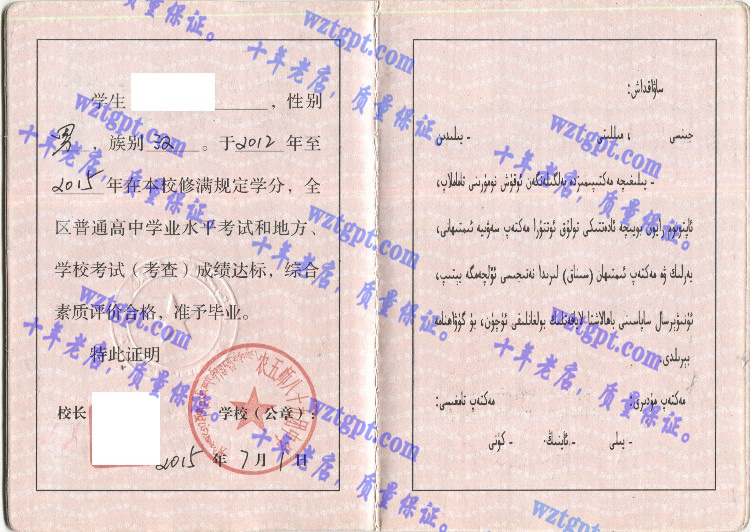 学生 ，性别
男，族别 汉。于2012年至
2015年在本校修满规定学分，全
区普通高中学业水平考试和地方、
学校考试（考查）成绩达标，综合
素质评价合格，准予毕业。
特此证明
校长 学校（公章）：
2015年7月1日
ساۋاقداش:
جىنسى ، مىللىتى - يىلىدىن
- يىلىغىچە مەكتىپىمىزدە بەلگىلەنگەن ئوقۇش نومۇرىنى تاماملاپ،
ئاپتونوم رايون بويىچە ئادەتتىكى تولۇق ئوتتۇرا مەكتەپ سەۋىيە ئىمتىھانى،
يەرلىك ۋە مەكتەپ ئىمتىھان (سىناق) لىرىدا نەتىجىسى ئۆلچەمگە يېتىپ،
ئۇنىۋېرسال ساپاسىنى باھالاشتا لاياقەتلىك بولغانلىقى ئۈچۈن، بۇ گۇۋاھنامە
بېرىلدى.
مەكتەپ مۇدىرى: مەكتەپ تامغىسى:
- يىلى - ئاينىڭ - كۈنى
wztgpt.com
十年老店，质量保证。